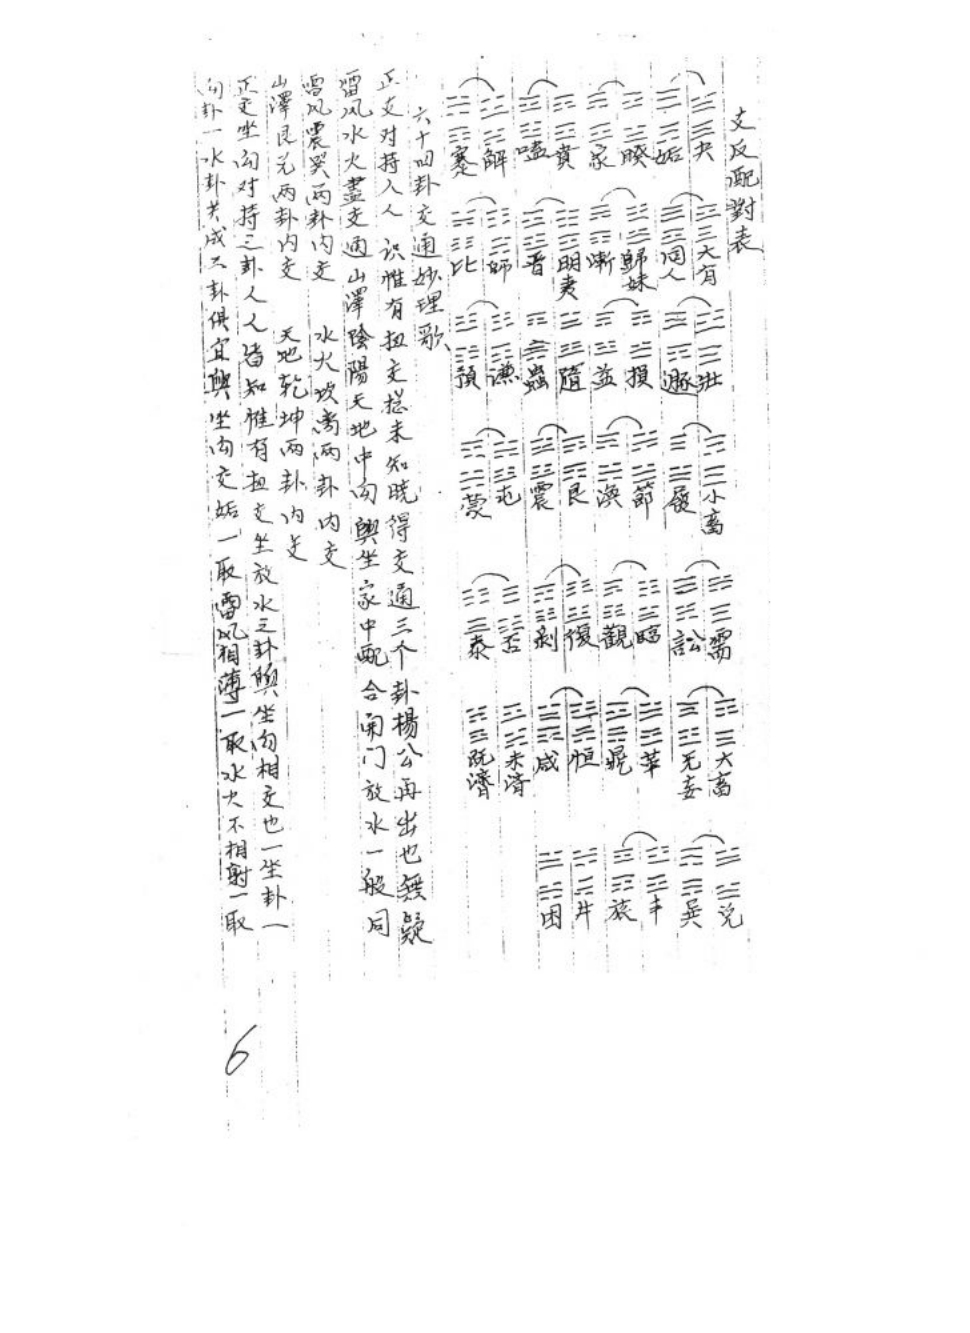 交反配對表
夬 大有 壯 小畜 需 大畜 兌
姤 同人 遯 履 訟 无妄 巽
睽 歸妹 損 節 臨 萃 丰
家 漸 益 渙 觀 晃 旅
賁 明夷 隨 艮 復 恒 井
嗑 晋 蠱 震 剥 咸 困
解 师 谦 屯 否 未济
蹇 比 預 蒙 泰 既濟
六十四卦交通妙理歌、
正交对持人人 识惟有扭交揔未知晓得交通三个卦楊公再出也無疑
雷风水火盡交通山澤陰陽天地中向與坐家中配合開门放水一般同
雷风震巽两卦内交 水火坎离两卦内交
山澤艮兑两卦内交 天地乾坤两卦内交
正交坐向对持之卦人人皆知惟有扭交坐放水之卦與坐向相交也一坐卦一
向卦一水卦共成三卦俱宜與坐向交姤一取雷风相薄一取水火不相射一取
6